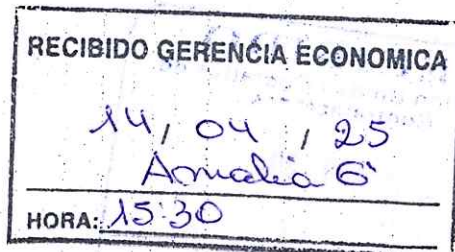 RECIBIDO GERENCIA ECONOMICA
14, 04 / 25
Amalia G
HORA: 15:30